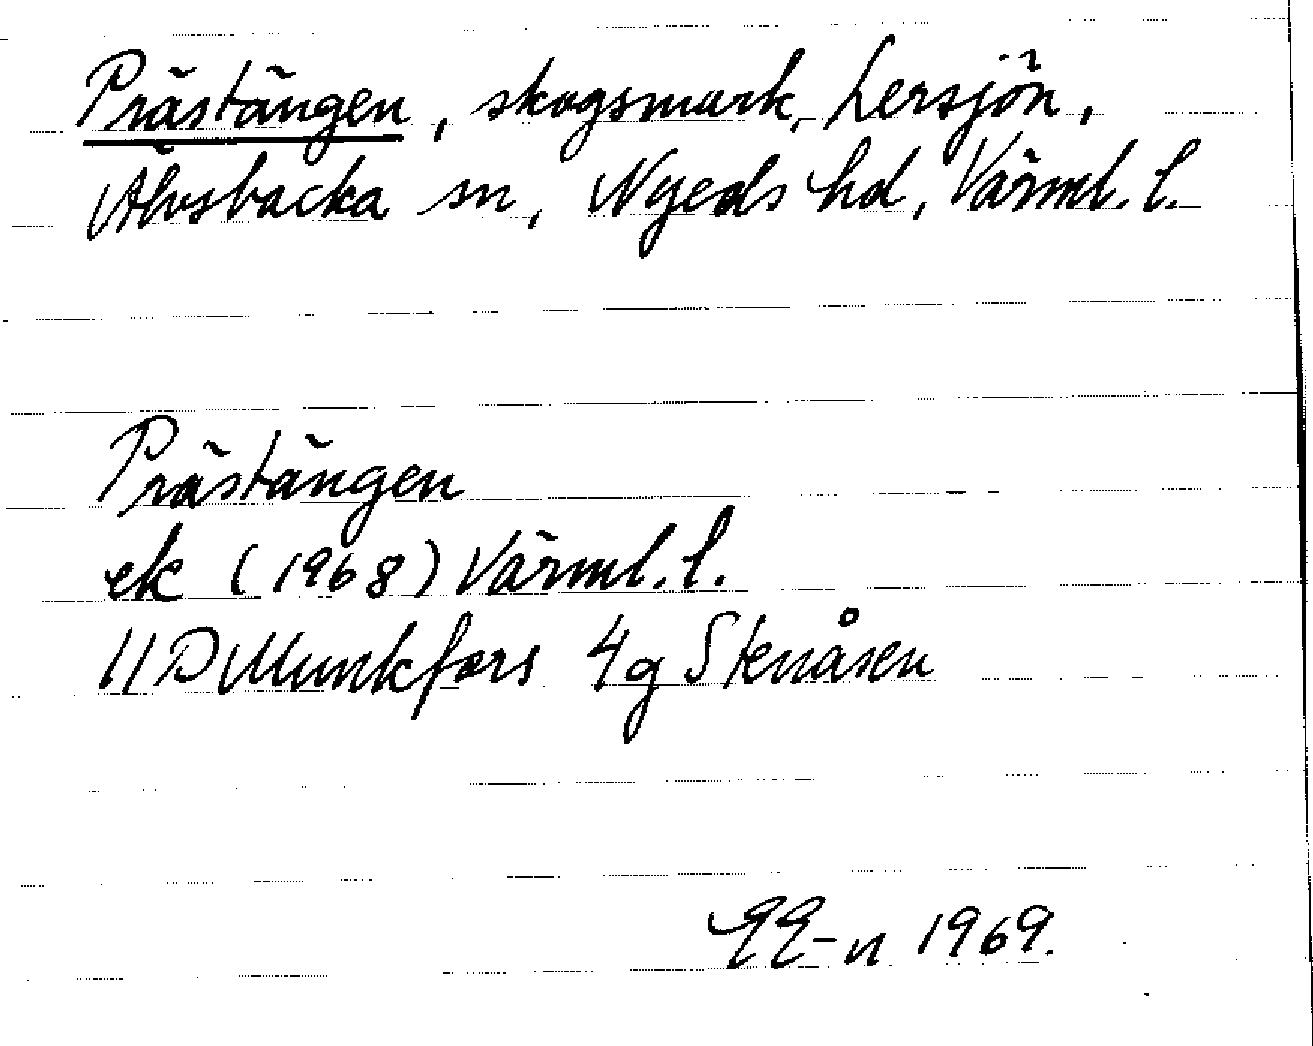 Prästängen, skogsmark, Lersjön,
Älvsbacka sn, Nyeds hd, Värml. l.
Prästängen
ek (1968) Värml. l.
11D Munkfors 4g Stenåsen
EE-n 1969.